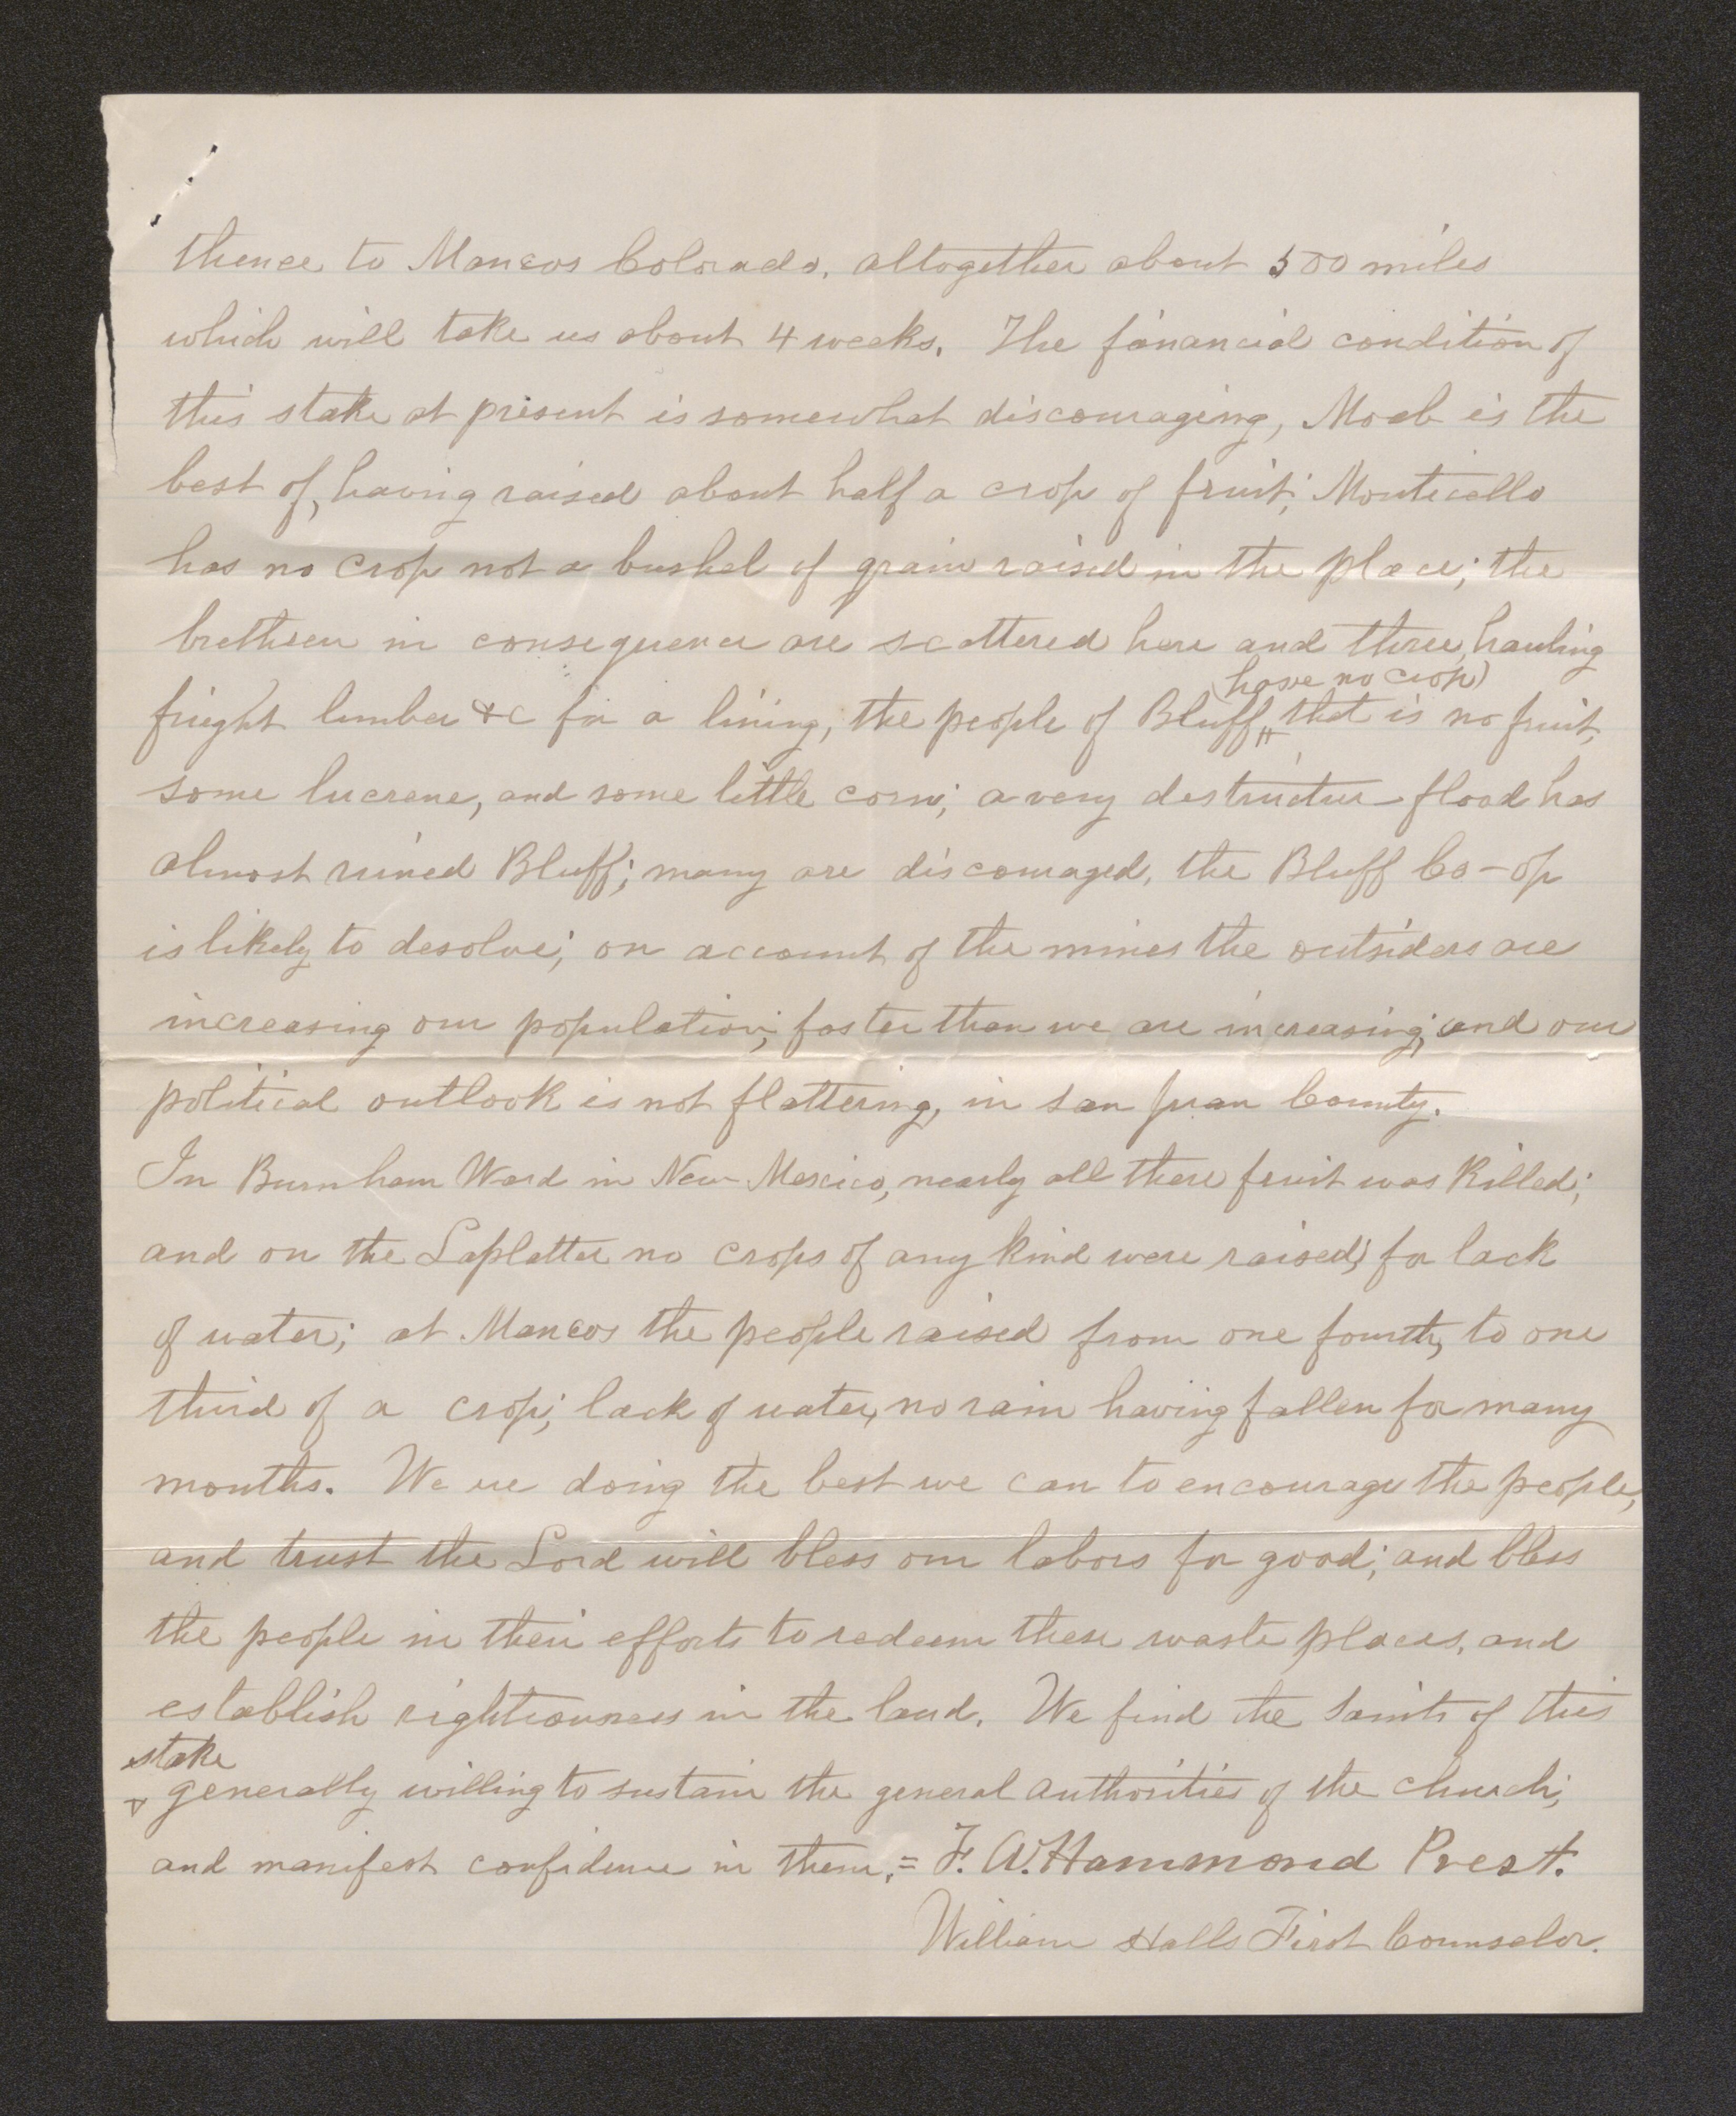 thence to Mancos Colorado, altogether about 500 miles
which will take us about 4 weeks. The financial condition of
this stake at present is somewhat discouraging, Moab is the
best of, having raised about half a crop of fruit; Monticello
has no crop not a bushel of grain raised in the place; the
brethren in consequence are scattered here and there, hauling
(have no crop)
frieght lumber &c for a lining, the people of Bluff, that is no fruit,
some lucrene, and some little corn; a very destructive flood has
almost ruined Bluff; many are discouraged, the Bluff Co-op
is likely to desolve; on account of the mines the outsiders are
increasing our population; faster than we are increasing; and our
political outlook is not flattering, in San Juan County.
In Burnham Ward in New Mexico, nearly all there fruit was killed;
and on the Laplatter no crops of any kind were raised; for lack
of water; at Mancos the people raised from one fourth, to one
third of a crop; lack of water, no rain having fallen for many
months. We are doing the best we can to encourage the people,
and trust the Lord will bless our labors for good; and bless
the people in their efforts to redeem these waste places, and
establish rightiousness in the land. We find the Saints of this
stake
generally willing to sustain the general authorities of the church;
and manifest confidence in them. = F. A. Hammond Prest.
William Halls First Counselor.